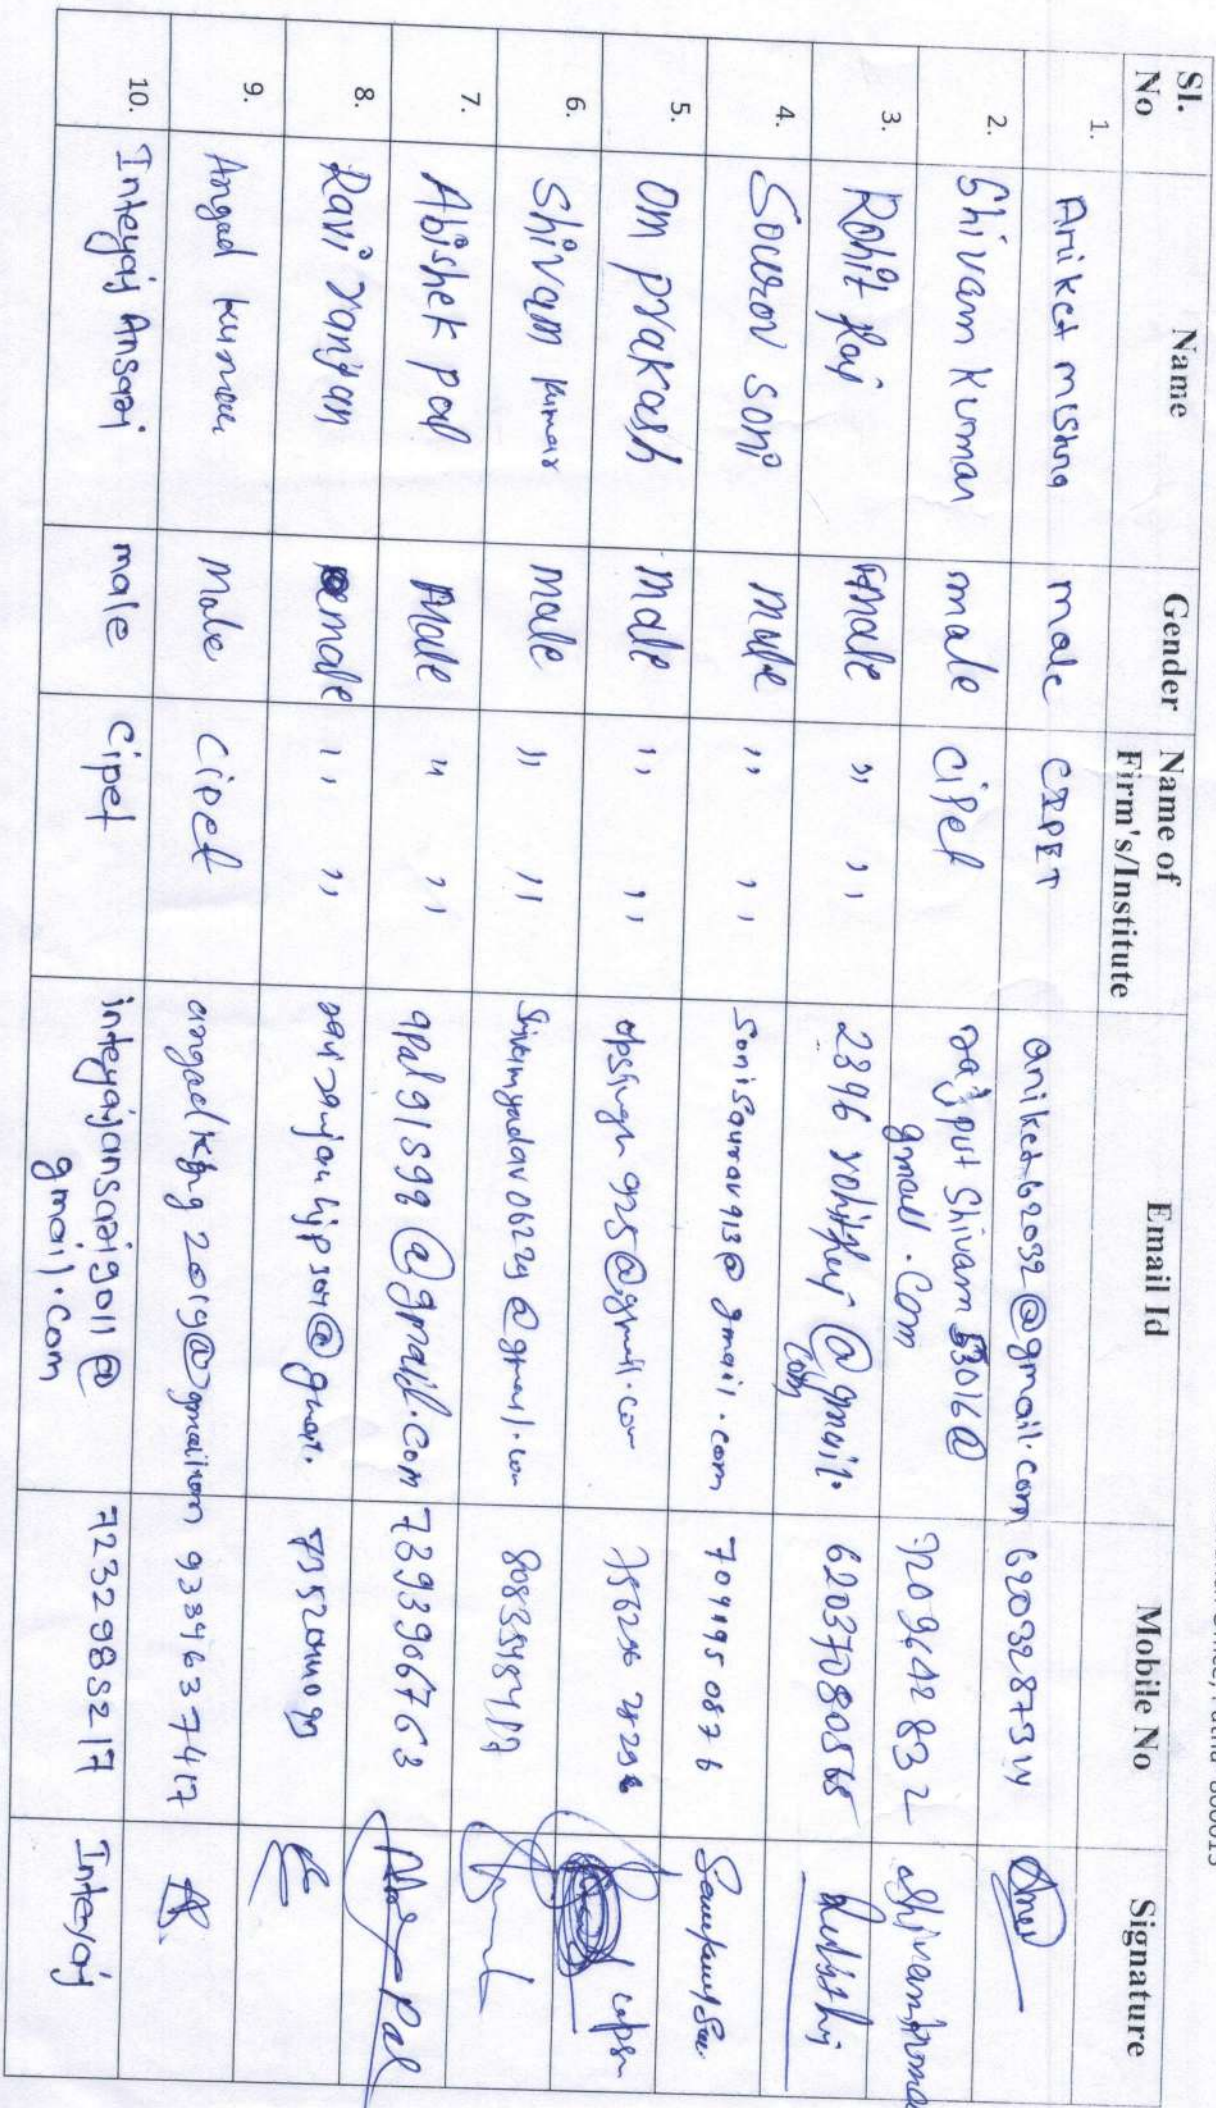 Patna 800013
Sl. No Name Gender Name of Firm's/Institute Email Id Mobile No Signature
1. Aniket mishra male CIPET aniket62032@gmail.com 6203287314
2. Shivam Kumar male cipet rajputShivam53016@
gmail.com 7209642832
3. Rohit Raj male " " 2396rohitraj@gmail.
com 6203708056
4. Sourov soni male " " sonisourav913@gmail.com 7091950876
5. Om prakash male " " opsingh925@gmail.com
6. Shivam kumar male " " Shivamyadav06224@gmail.com
7. Abishek pal Male " " apal91899@gmail.com 7393906763
8. Ravi ranjan male " "
9. Angad kumar Male Cipet 9334637417
10. Inteyaj Ansari male cipet inteyajansari9011@
gmail.com 7232983217 Inteyaj